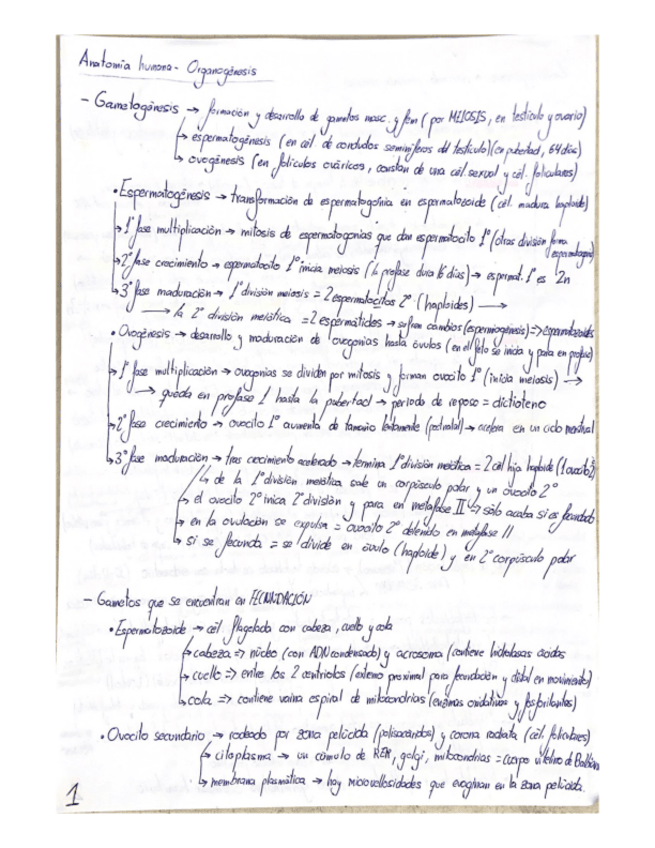 Anatomía humana - Organogénesis
- Gametogénesis → formación y desarrollo de gametos masc. y fem (por MEIOSIS, en testículo y ovario)
↳ espermatogénesis (en cél. de conductos seminíferos del testículo) (en pubertad, 64 días)
↳ ovogénesis (en folículos ováricos, constan de una cél. sexual y cél. foliculares)
• Espermatogénesis → transformación de espermatogónia en espermatozoide (cél. madura haploide)
↳ 1ª fase multiplicación → mitosis de espermatogonias que dan espermatocito 1º (otras división forma espermatogonia)
↳ 2ª fase crecimiento → espermatocito 1º inicia meiosis (la profase dura 16 días) → espermat. 1º es 2n
↳ 3ª fase maduración → 1ª división meiosis = 2 espermatocitos 2º (haploides) →
→ la 2ª división meiótica = 2 espermátidas → sufren cambios (espermiogénesis) => espermatozoides
• Ovogénesis → desarrollo y maduración de ovogonias hasta óvulos (en el feto se inicia y para en profase)
↳ 1ª fase multiplicación → ovogonias se dividen por mitosis y forman ovocito 1º (inicia meiosis) →
→ queda en profase 1 hasta la pubertad → periodo de reposo = dictioteno
↳ 2ª fase crecimiento → ovocito 1º aumenta de tamaño lentamente (postnatal) → acelera en un ciclo menstrual
↳ 3ª fase maduración → tras crecimiento acelerado → termina 1ª división meiótica = 2 cél hija haploide (1 ovocito 2º)
↳ de la 1ª división meiótica sale un corpúsculo polar y un ovocito 2º
↳ el ovocito 2º inica 2ª división y para en metafase II → sólo acaba si es fecundado
↳ en la ovulación se expulsa = ovocito 2º detenido en metafase II
↳ si se fecunda = se divide en óvulo (haploide) y en 2º corpúsculo polar
- Gametos que se encuentran en FECUNDACIÓN
• Espermatozoide → cél. flagelada con cabeza, cuello y cola
↳ cabeza => núcleo (con ADN condensado) y acrosoma (contiene hidrolasas ácidas
↳ cuello => entre los 2 centriolos (extremo proximal para fecundación y distal en movimiento)
↳ cola => contiene vaina espiral de mitocondrias (enzimas oxidativas y fosforilantes)
• Ovocito secundario → rodeado por zona pelúcida (polisacáridos) y corona radiata (cél. foliculares)
↳ citoplasma → un cúmulo de RER, golgi, mitocondrias = cuerpo vitelino de Balbiani
↳ membrana plasmática → hay microvellosidades que evaginan en la zona pelúcida.
1